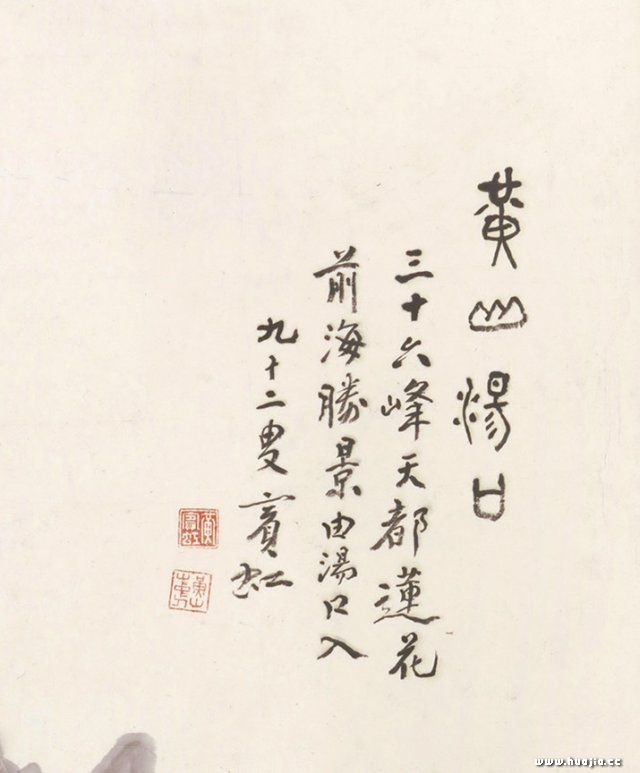 黃山湯口
三十六峰天都蓮花
前海勝景由湯口入
九十二叟賓虹
黃賓虹
黃山山中人
www.huajia.cc